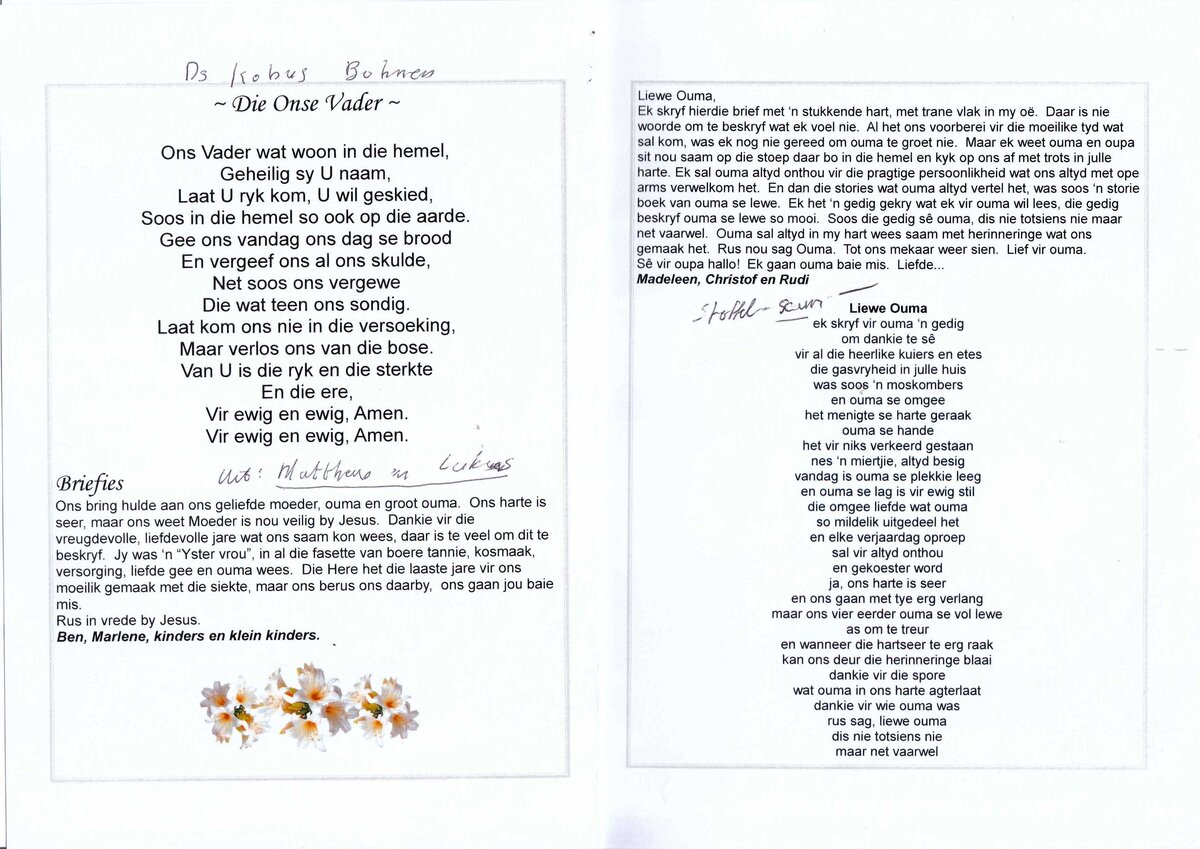 Ds Kobus Bohnen
~ Die Onse Vader ~
Ons Vader wat woon in die hemel,
Geheilig sy U naam,
Laat U ryk kom, U wil geskied,
Soos in die hemel so ook op die aarde.
Gee ons vandag ons dag se brood
En vergeef ons al ons skulde,
Net soos ons vergewe
Die wat teen ons sondig.
Laat kom ons nie in die versoeking,
Maar verlos ons van die bose.
Van U is die ryk en die sterkte
En die ere,
Vir ewig en ewig, Amen.
Vir ewig en ewig, Amen.
Uit: Mattheus 'n Lukas
Briefies
Ons bring hulde aan ons geliefde moeder, ouma en groot ouma.  Ons harte is
seer, maar ons weet Moeder is nou veilig by Jesus.  Dankie vir die
vreugdevolle, liefdevolle jare wat ons saam kon wees, daar is te veel om dit te
beskryf.  Jy was ‘n “Yster vrou”, in al die fasette van boere tannie, kosmaak,
versorging, liefde gee en ouma wees.  Die Here het die laaste jare vir ons
moeilik gemaak met die siekte, maar ons berus ons daarby,  ons gaan jou baie
mis.
Rus in vrede by Jesus.
Ben, Marlene, kinders en klein kinders.
Liewe Ouma,
Ek skryf hierdie brief met ‘n stukkende hart, met trane vlak in my oë.  Daar is nie
woorde om te beskryf wat ek voel nie.  Al het ons voorberei vir die moeilike tyd wat
sal kom, was ek nog nie gereed om ouma te groet nie.  Maar ek weet ouma en oupa
sit nou saam op die stoep daar bo in die hemel en kyk op ons af met trots in julle
harte.  Ek sal ouma altyd onthou vir die pragtige persoonlikheid wat ons altyd met ope
arms verwelkom het.  En dan die stories wat ouma altyd vertel het, was soos ‘n storie
boek van ouma se lewe.  Ek het ‘n gedig gekry wat ek vir ouma wil lees, die gedig
beskryf ouma se lewe so mooi.  Soos die gedig sê ouma, dis nie totsiens nie maar
net vaarwel.  Ouma sal altyd in my hart wees saam met herinneringe wat ons
gemaak het.  Rus nou sag Ouma.  Tot ons mekaar weer sien.  Lief vir ouma.
Sê vir oupa hallo!  Ek gaan ouma baie mis.  Liefde...
Madeleen, Christof en Rudi
Stoffel - seun
Liewe Ouma
ek skryf vir ouma ‘n gedig
om dankie te sê
vir al die heerlike kuiers en etes
die gasvryheid in julle huis
was soos ‘n moskombers
en ouma se omgee
het menigte se harte geraak
ouma se hande
het vir niks verkeerd gestaan
nes ‘n miertjie, altyd besig
vandag is ouma se plekkie leeg
en ouma se lag is vir ewig stil
die omgee liefde wat ouma
so mildelik uitgedeel het
en elke verjaardag oproep
sal vir altyd onthou
en gekoester word
ja, ons harte is seer
en ons gaan met tye erg verlang
maar ons vier eerder ouma se vol lewe
as om te treur
en wanneer die hartseer te erg raak
kan ons deur die herinneringe blaai
dankie vir die spore
wat ouma in ons harte agterlaat
dankie vir wie ouma was
rus sag, liewe ouma
dis nie totsiens nie
maar net vaarwel